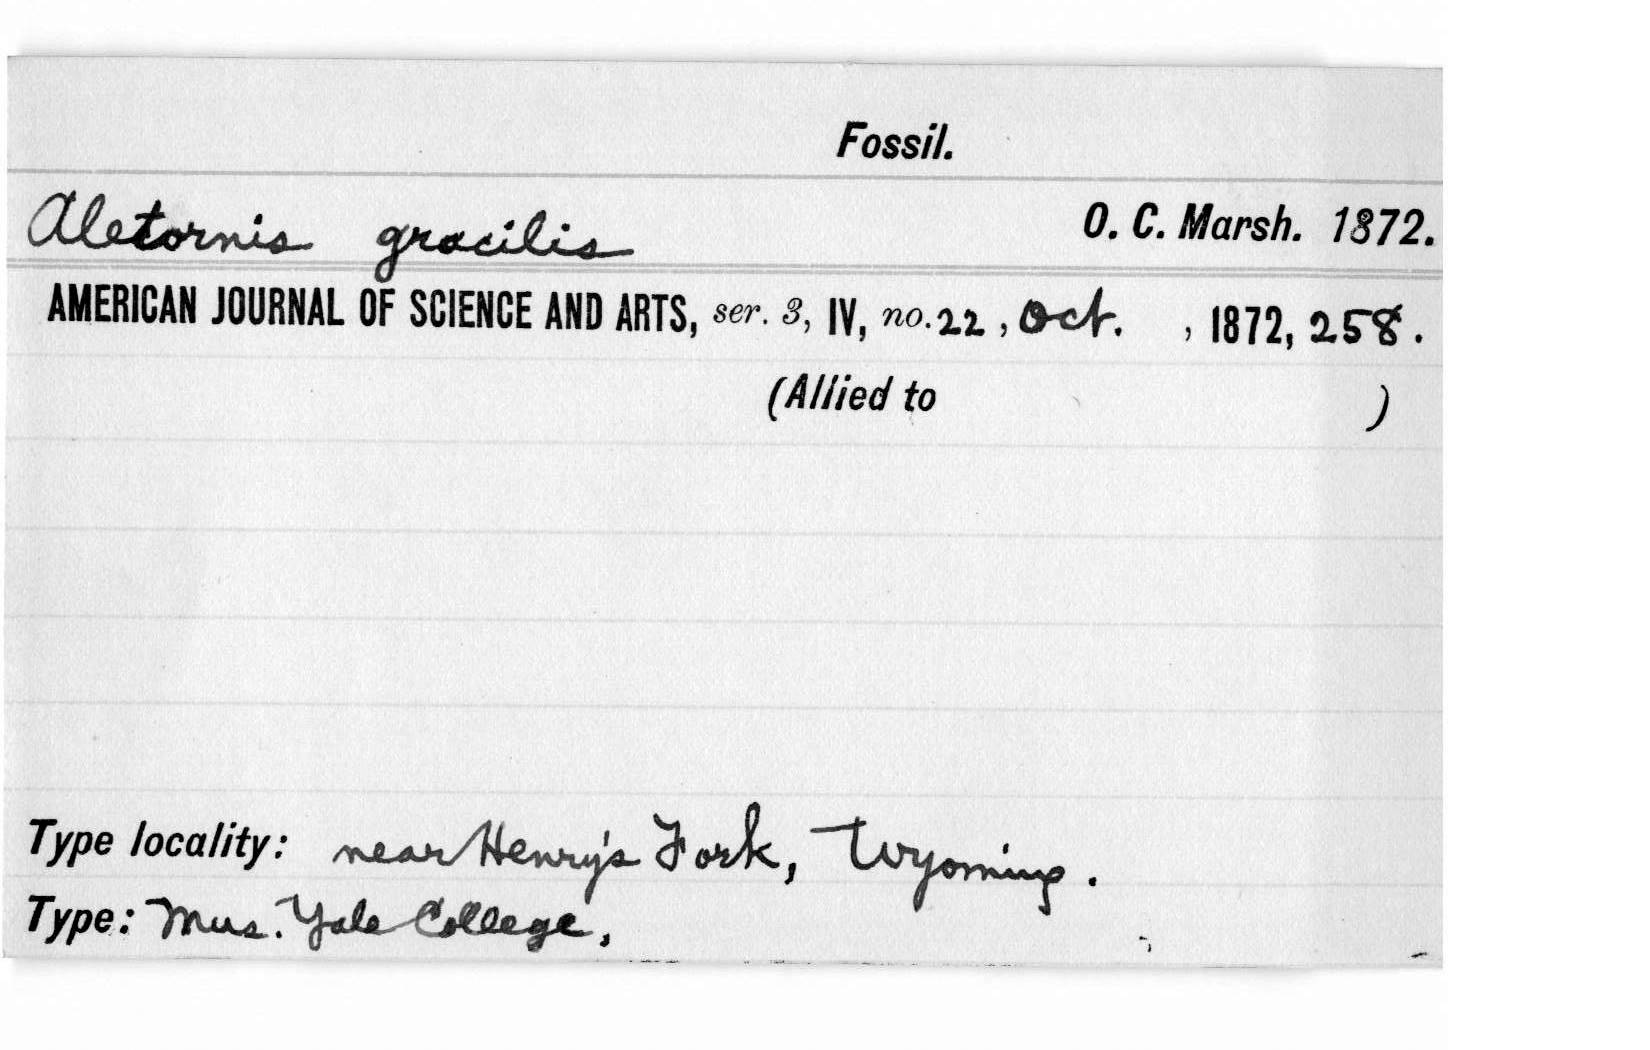 Fossil.
Aletornis gracilis O. C. Marsh. 1872.
AMERICAN JOURNAL OF SCIENCE AND ARTS, ser. 3, IV, no. 22, Oct. , 1872, 258.
(Allied to )
Type locality: near Henry's Fork, Wyoming.
Type: Mus. Yale College,